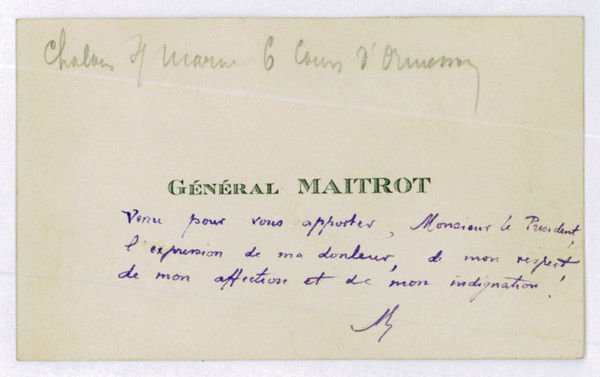 Chalons s/ Marne 6 Cours d'Ormesson
GÉNÉRAL MAITROT
Venu pour vous apporter, Monsieur le Président,
l'expression de ma douleur, de mon respect
de mon affection et de mon indignation!
M